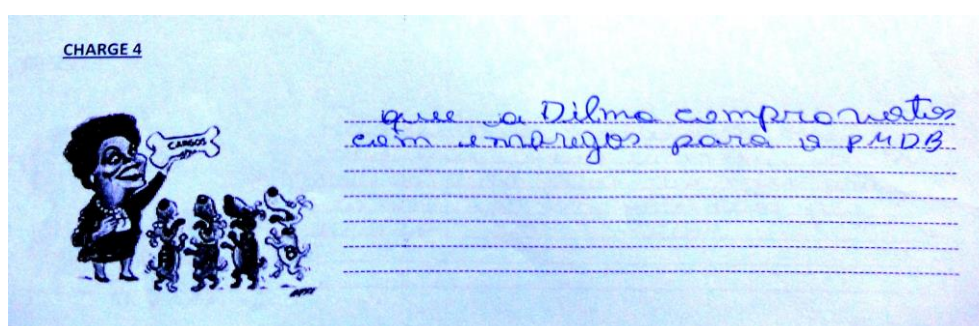 CHARGE 4
CARGOS
que a Dilma compra votos
com empregos para o PMDB